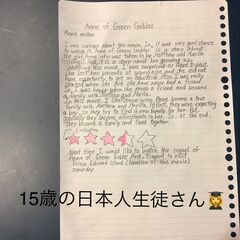 Anne of Green Gables
Movie review
I was curious about this movie. So, it was very good chance
to watch it. Anne of Green Gables is a story about
the girl Anne who was taken in by Matthew and Marilla
And, it is a story about her growing up.
Watching this movie, I was surprised at Anne's past.
She lost her parents at young age and
have opportunity to get an education. Also, I was
shocked when she said she has never had a friend.
So, I was happy when she made a friend and became
a family with Matthew and Marilla.
In this movie, I like scene where Anne became a true
family with Matthew and Marilla. At first, they were expecting
a boy, so they try to find a new family for her. But
gradually they become affectionate to her. So, at the end
They became a family and lived together.
Evaluation
Next time I would like to watch the sequel of
Anne of Green Gables. And, I want to visit
Prince Edward Island (location of the movie)
someday.
15歳の日本人生徒さん👩‍🎓